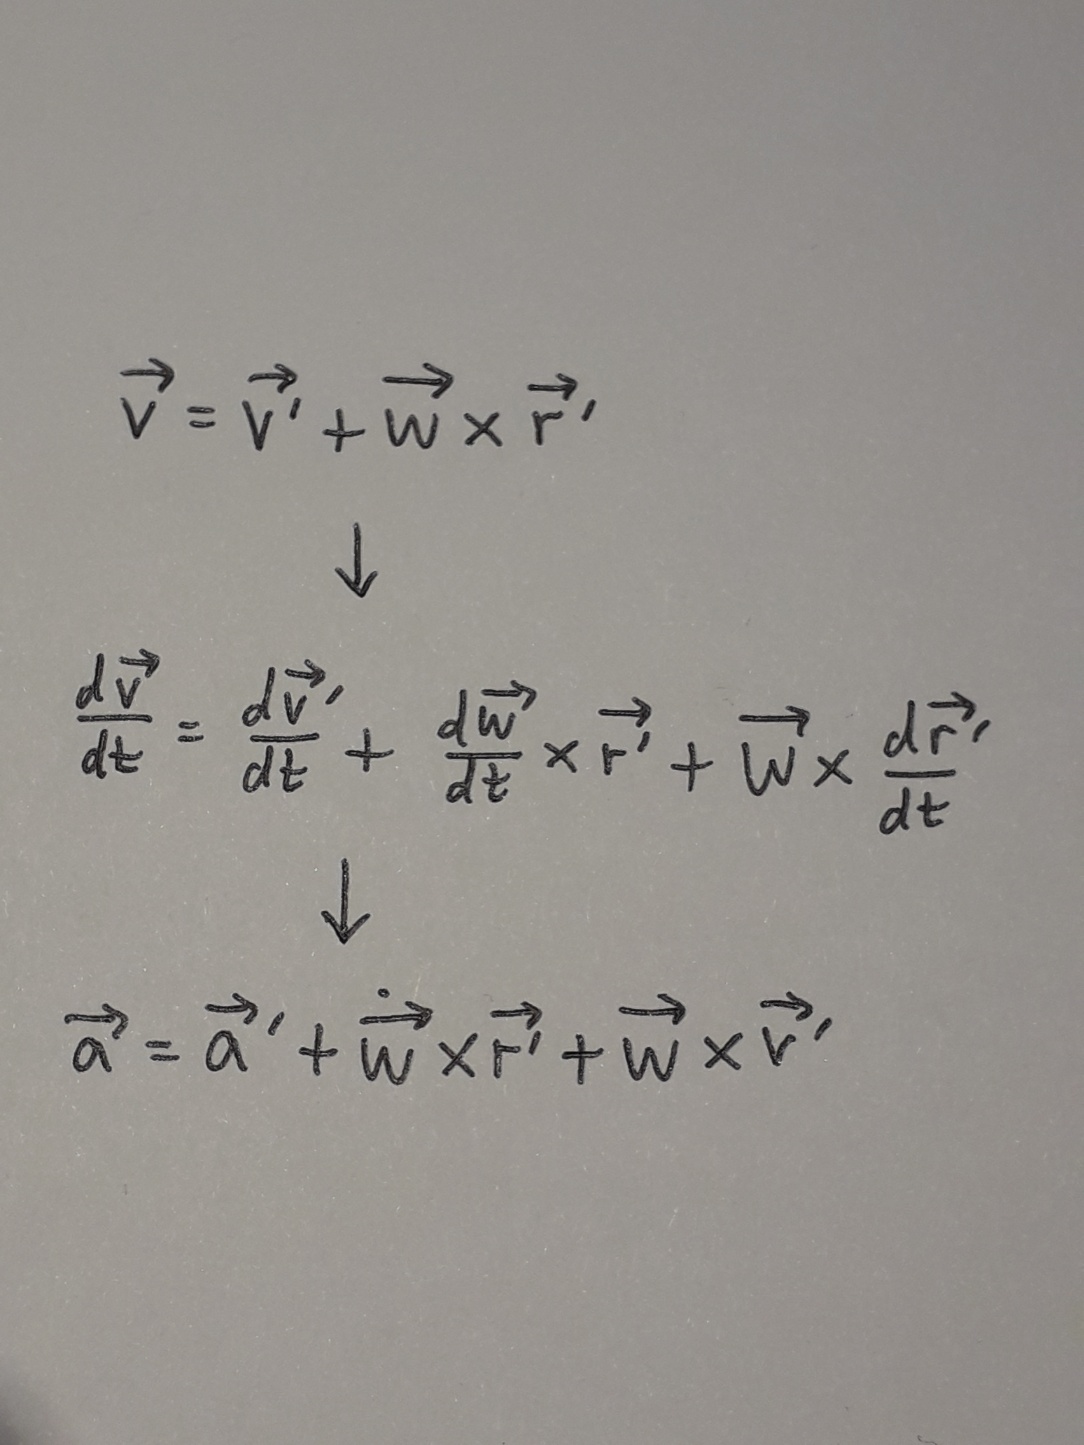 v⃗ = v⃗′ + w⃗ × r⃗′
↓
dv⃗/dt = dv⃗′/dt + dw⃗/dt × r⃗′ + w⃗ × dr⃗′/dt
↓
a⃗ = a⃗′ + ẇ⃗ × r⃗′ + w⃗ × v⃗′